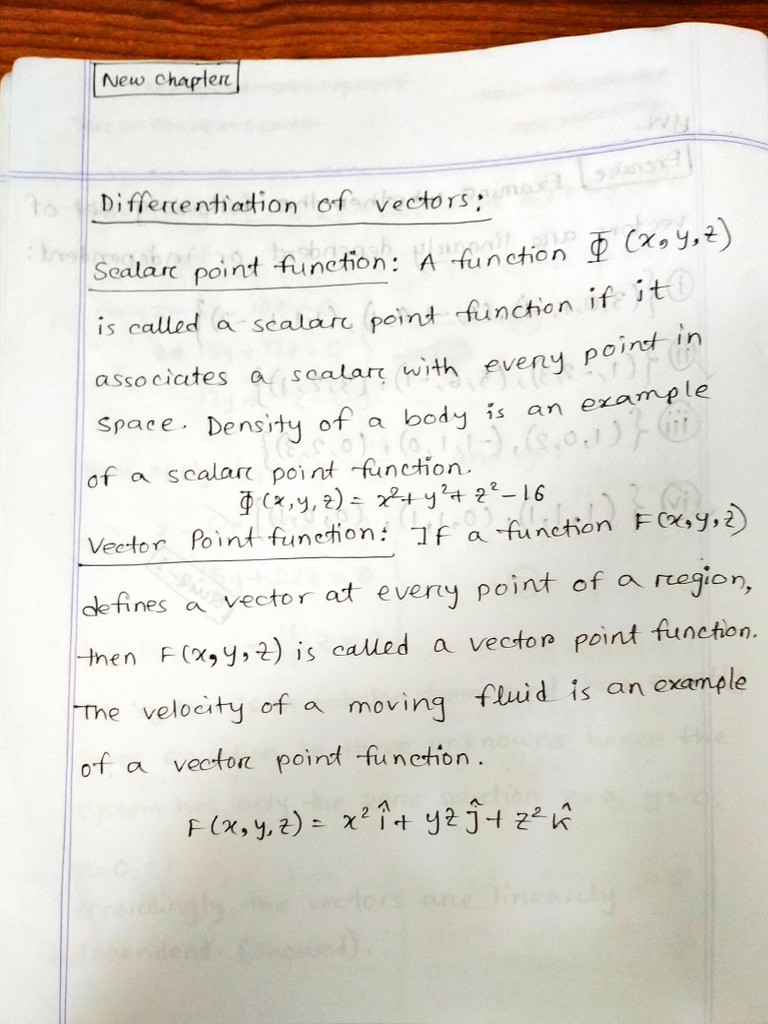 New Chapter
Differentiation of vectors:
Scalar point function: A function Φ (x, y, z)
is called a scalar point function if it
associates a scalar with every point in
space. Density of a body is an example
of a scalar point function.
Φ(x, y, z) = x² + y² + z² - 16
Vector Point function: If a function F(x, y, z)
defines a vector at every point of a region,
then F(x, y, z) is called a vector point function.
The velocity of a moving fluid is an example
of a vector point function.
F(x, y, z) = x² î + yz ĵ + z² k̂